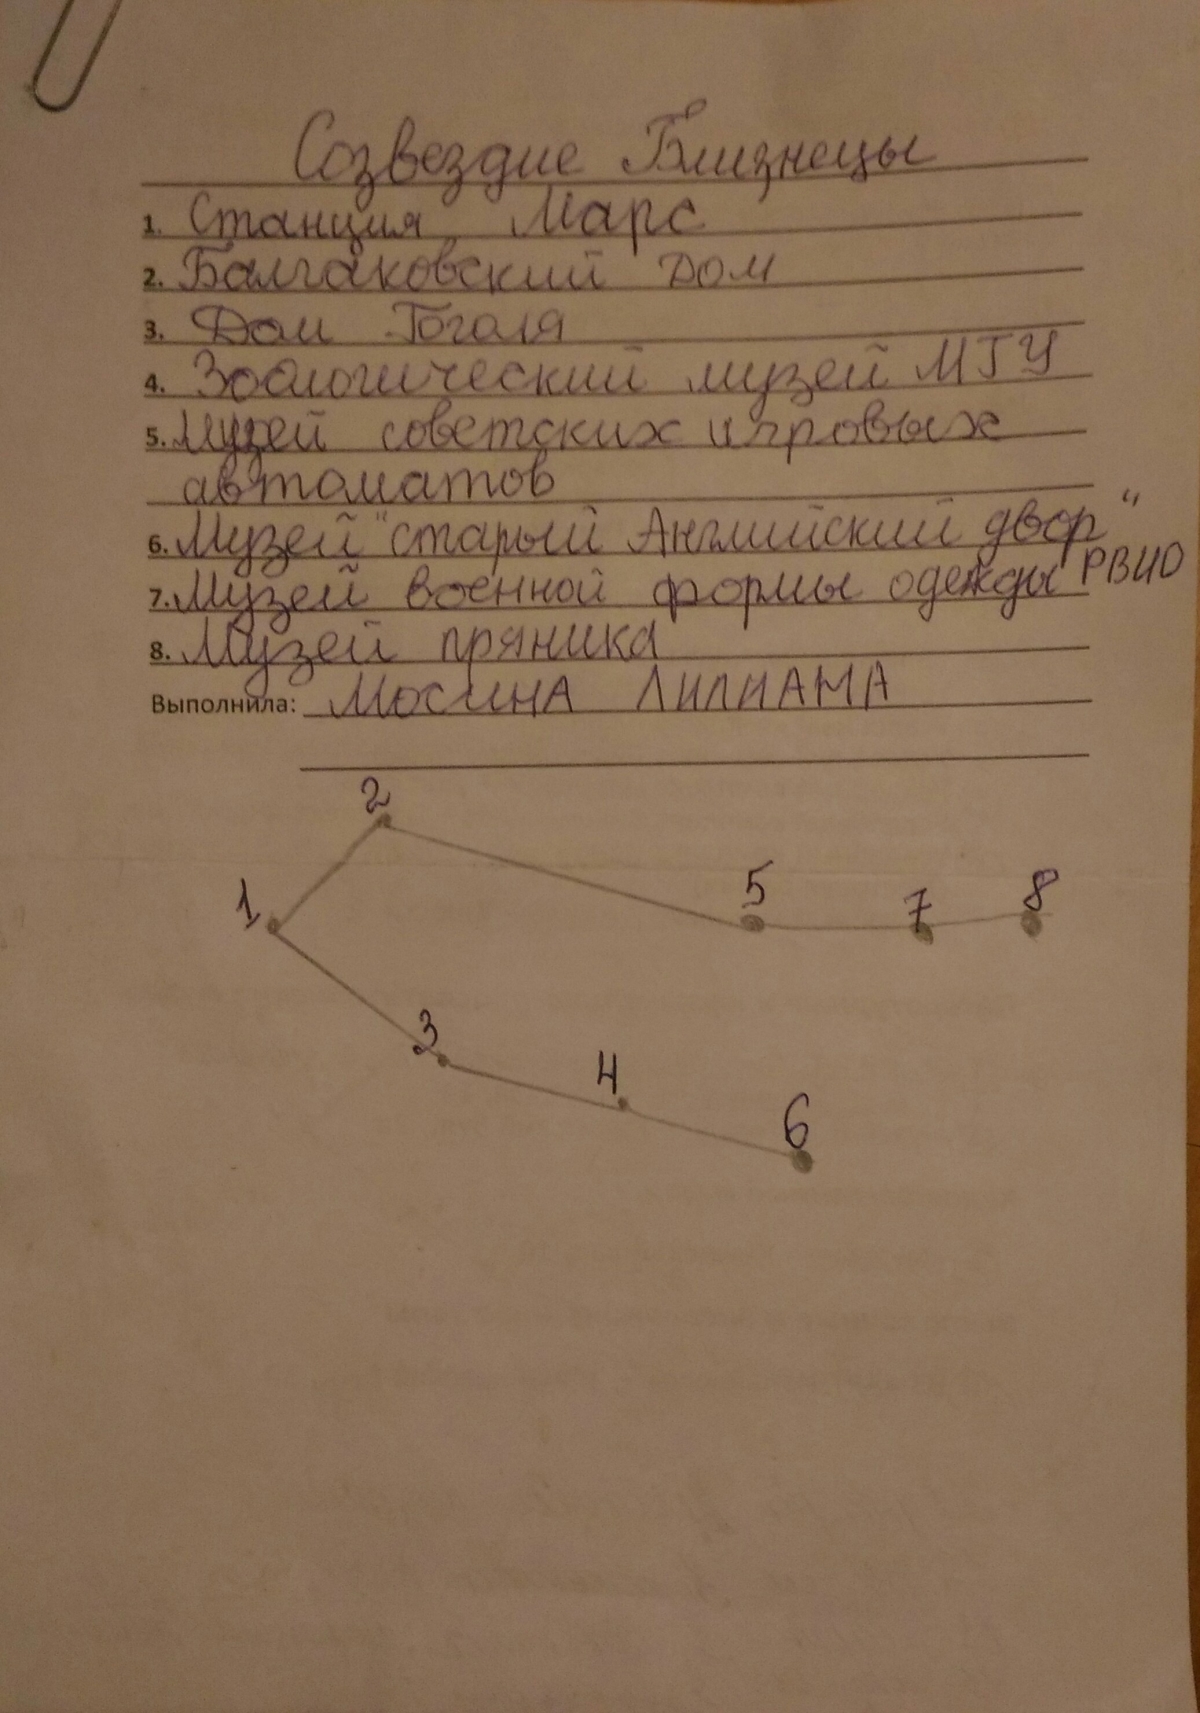 Созвездие Близнецы
1. Станция Марс
2. Балгаковский Дом
3. Дом Гоголя
4. Зоологический музей МГУ
5. Музей советских игровых
автоматов
6. Музей "старый Английский двор"
7. Музей военной формы одежды РВИО
8. Музей пряника
Выполнила: Мосина Лилиана
2
1
5
7
8
3
4
6